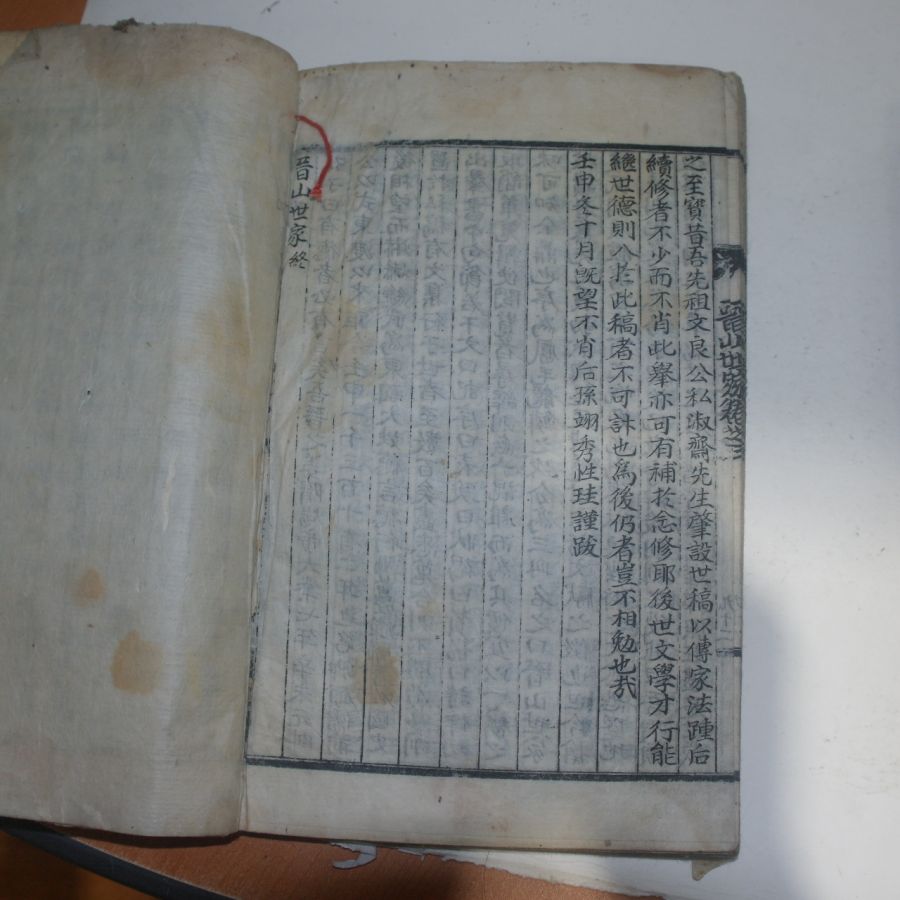 之至寶昔吾先祖文良公私淑齋先生肇設世稿以傳家法踵后
續修者不少而不肖此舉亦可有補於念修耶後世文學才行能
繼世德則入於此稿者不可計也爲後仍者豈不相勉也哉
壬申冬十月旣望不肖后孫翊秀性珪謹跋
晋山世家終
晋山世家卷之三